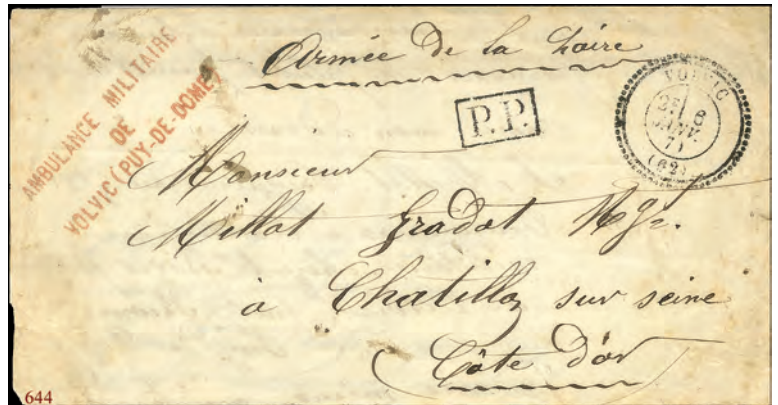 AMBULANCE MILITAIRE
DE
VOLVIC (PUY-DE-DOME)
Armée de la Loire
P.P.
VOLVIC
2E 6
JANV.
71
(62)
Monsieur
Millot Gradot Nge.
à Chatillon sur seine
Côte d'or
644